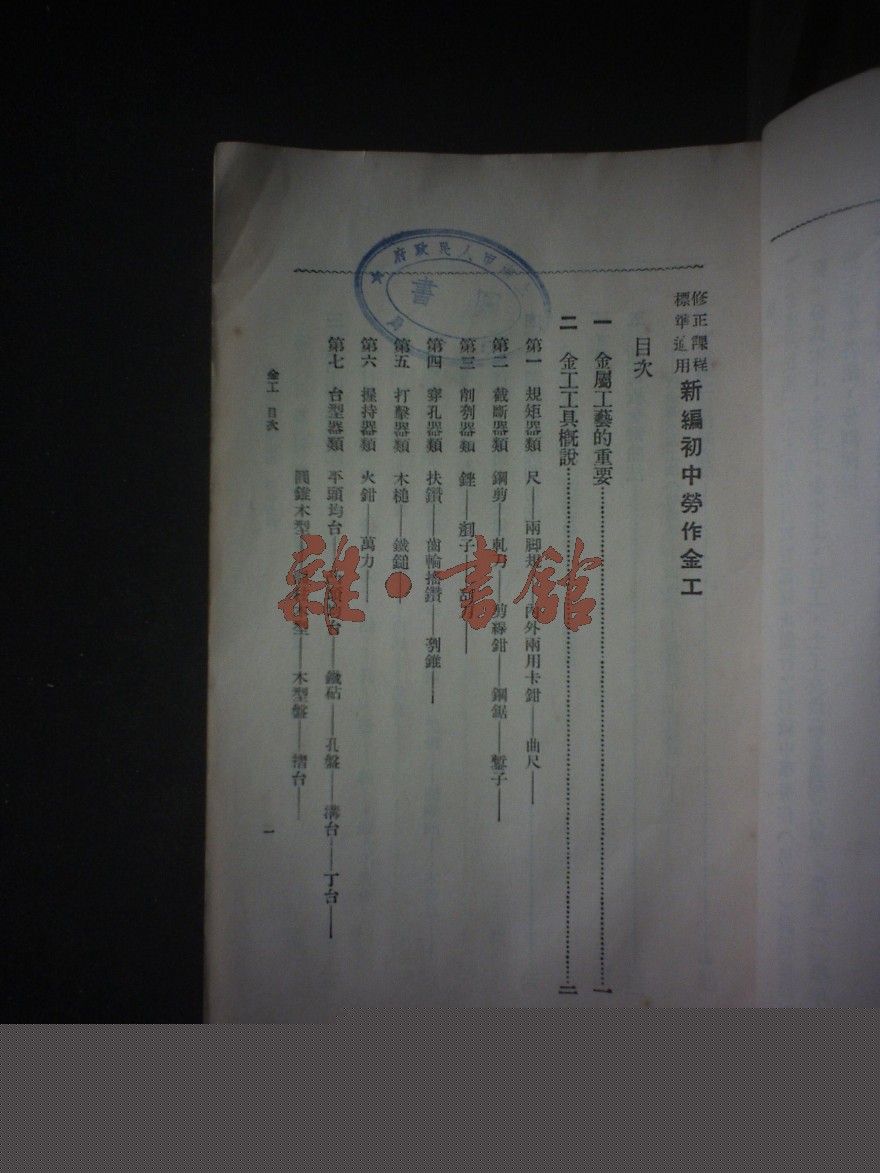 修正課程
標準適用
新編初中勞作金工
目次
一 金屬工藝的重要……一
二 金工工具概說……二
第一 規矩器類 尺——兩脚規——內外兩用卡鉗——曲尺——
第二 截斷器類 鋼剪——軋刀——剪線鉗——鋼鋸——鏨子——
第三 削剜器類 銼——
第四 穿孔器類 扶鑽——齒輪搖鑽——剜錐——
第五 打擊器類 木槌——鐵鎚——
第六 握持器類 火鉗——萬力——
第七 台型器類 平頭均台——鐵砧——孔盤——溝台——丁台——
木型——木型盤——槽台——
金工 目次
一
市人民政府
書
雜·書館